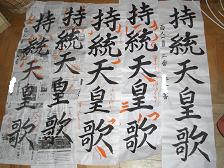 持統天皇歌
持統天皇歌
持統天皇歌
持統天皇歌
持統天皇歌